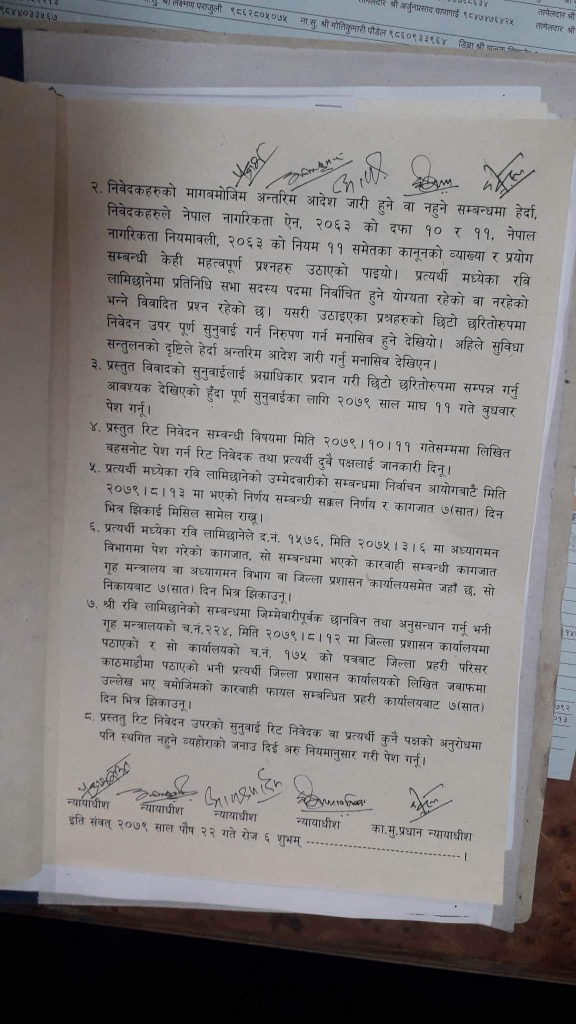 ना.सु. श्री लक्ष्मण पराजुली ९८६२८०५०७५
ना.सु. श्री मोतिकुमारी पौडेल ९८६०९३३९६४
तामेलदार श्री अर्जुनप्रसाद चापागाई ९८४७४७६४२५
९८४४०३३५६७
२. निवेदकहरुको मागबमोजिम अन्तरिम आदेश जारी हुने वा नहुने सम्बन्धमा हेर्दा,
निवेदकहरुले नेपाल नागरिकता ऐन, २०६३ को दफा १० र ११, नेपाल
नागरिकता नियमावली, २०६३ को नियम ११ समेतका कानूनको व्याख्या र प्रयोग
सम्बन्धी केही महत्वपूर्ण प्रश्नहरु उठाएको पाइयो। प्रत्यर्थी मध्येका रवि
लामिछानेमा प्रतिनिधि सभा सदस्य पदमा निर्वाचित हुने योग्यता रहेको वा नरहेको
भन्ने विवादित प्रश्न रहेको छ। यसरी उठाइएका प्रश्नहरुको छिटो छरितोरुपमा
निवेदन उपर पूर्ण सुनुवाई गर्न निरुपण गर्न मनासिव हुने देखियो। अहिले सुविधा
सन्तुलनको दृष्टिले हेर्दा अन्तरिम आदेश जारी गर्नु मनासिव देखिएन।
३. प्रस्तुत विवादको सुनुवाईलाई अग्राधिकार प्रदान गरी छिटो छरितोरुपमा सम्पन्न गर्नु
आवश्यक देखिएको हुँदा पूर्ण सुनुवाईका लागि २०७९ साल माघ ११ गते बुधवार
पेश गर्नू।
४. प्रस्तुत रिट निवेदन सम्बन्धी विषयमा मिति २०७९।१०।११ गतेसम्ममा लिखित
बहसनोट पेश गर्न रिट निवेदक तथा प्रत्यर्थी दुवै पक्षलाई जानकारी दिनू।
५. प्रत्यर्थी मध्येका रवि लामिछानेको उम्मेदवारीको सम्बन्धमा निर्वाचन आयोगबाटै मिति
२०७९।८।१३ मा भएको निर्णय सम्बन्धी सक्कल निर्णय र कागजात ७(सात) दिन
भित्र झिकाई मिसिल सामेल राख्नू।
६. प्रत्यर्थी मध्येका रवि लामिछानेले द.नं. १५७६, मिति २०७५।३।६ मा अध्यागमन
विभागमा पेश गरेको कागजात, सो सम्बन्धमा भएको कारवाही सम्बन्धी कागजात
गृह मन्त्रालय वा अध्यागमन विभाग वा जिल्ला प्रशासन कार्यालयसमेत जहाँ छ, सो
निकायबाट ७(सात) दिन भित्र झिकाउनू।
७. श्री रवि लामिछानेको सम्बन्धमा जिम्मेवारीपूर्वक छानविन तथा अनुसन्धान गर्नू भनी
गृह मन्त्रालयको च.नं.२२४, मिति २०७९।८।१२ मा जिल्ला प्रशासन कार्यालयमा
पठाएको र सो कार्यालयको च.नं. १७५ को पत्रबाट जिल्ला प्रहरी परिसर
काठमाडौमा पठाएको भनी प्रत्यर्थी जिल्ला प्रशासन कार्यालयको लिखित जवाफमा
उल्लेख भए बमोजिमको कारवाही फायल सम्बन्धित प्रहरी कार्यालयबाट ७(सात)
दिन भित्र झिकाउनू।
८. प्रस्ततु रिट निवेदन उपरको सुनुवाई रिट निवेदक वा प्रत्यर्थी कुनै पक्षको अनुरोधमा
पनि स्थगित नहुने व्यहोराको जनाउ दिई अरु नियमानुसार गरी पेश गर्नू।
न्यायाधीश न्यायाधीश न्यायाधीश न्यायाधीश का.मु.प्रधान न्यायाधीश
इति संवत् २०७९ साल पौष २२ गते रोज ६ शुभम् ------------------------------।